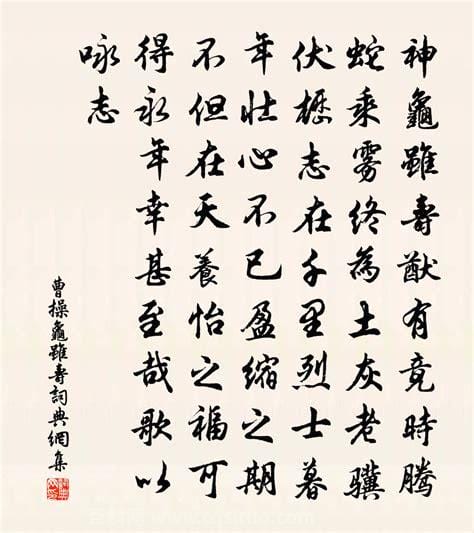 神龜雖壽猷有竟時騰
蛇乘雾終為土灰老驥
伏櫪志在千里烈士暮
年壯心不已盈縮之期
不但在天養怡之福可
得永年幸甚至哉歌以
咏志
曹操龜雖壽詞典網集